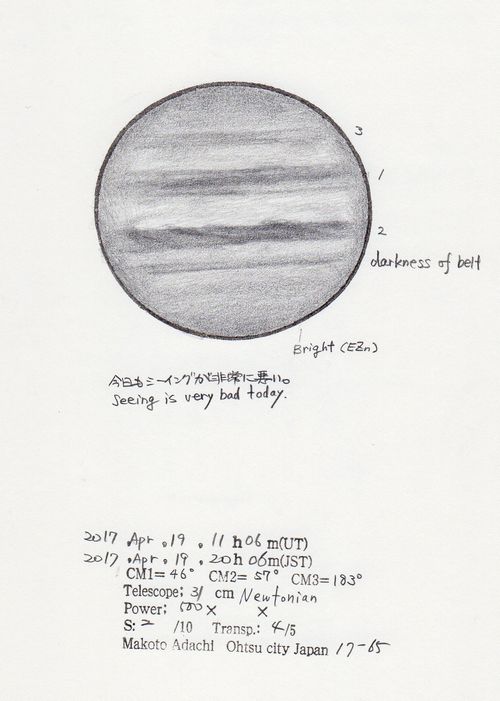 3
1
2
darkness of belt
Bright (EZn)
今日もシーイングが非常に悪い。
Seeing is very bad today.
2017 Apr. 19. 11h06m(UT)
2017. Apr. 19. 20h06m(JST)
CM1= 46° CM2= 57° CM3= 183°
Telescope: 31 cm Newtonian
Power: × ×
S: 2 /10 Transp.: 4/5
Makoto Adachi Ohtsu city Japan 17-65